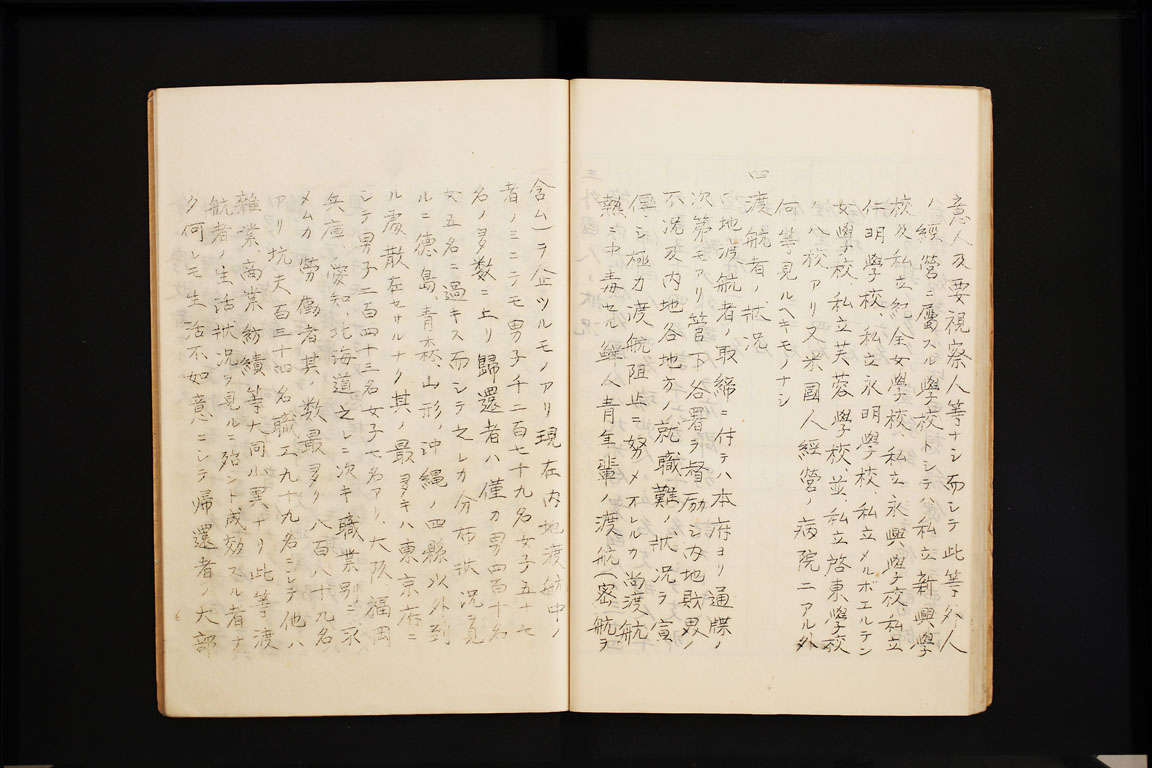 意人及要視察人等ナシ而シテ此等外人
ノ經營ニ屬スル學校トシテハ私立新興學
校及私立紀全女學校、私立永興學校私立
仁明學校、私立永明學校、私立メルボエルテン
女學校、私立芙蓉學校並私立啓東學校
ノ八校アリ又米國人經營ノ病院ニアル外
何等見ルヘキモノナシ
四
渡航者ノ狀況
當地渡航者ノ取締ニ付テハ本府ヨリ通牒ノ
次第モアリ管下各署ヲ督励シ内地財界ノ
不況及内地各地方ノ就職難ノ狀況ヲ宣
伝シ極力渡航阻止ニ努メオレルカ尚渡航
熱ニ中毒セル鮮人青年輩ノ渡航(密航ヲ
含ム)ヲ企ツルモノアリ現在内地渡航中ノ
者ノミニテモ男子千二百七十九名女子五十七
名ノ多数ニ上リ歸還者ハ僅カ男四百十名
女五名ニ過キス而シテ之レカ分布狀況ヲ見
ルニ徳島、青森、山形、沖縄ノ四縣以外到
ル處散在セサルナク其ノ最多キハ東京府ニ
シテ男子二百四十三名女子七名アリ、大阪福岡
兵庫、愛知、北海道之レニ次キ職業別ニ求
メムカ勞働者其ノ数最多ク八百八十九名
アリ坑夫百三十四名職工九十九名ニシテ他ハ
雜業、商業紡績等大同小異ナリ此等渡
航者ノ生活狀況ヲ見ルニ殆ント成効スル者ナ
ク何レモ生活不如意ニシテ帰還者ノ大部